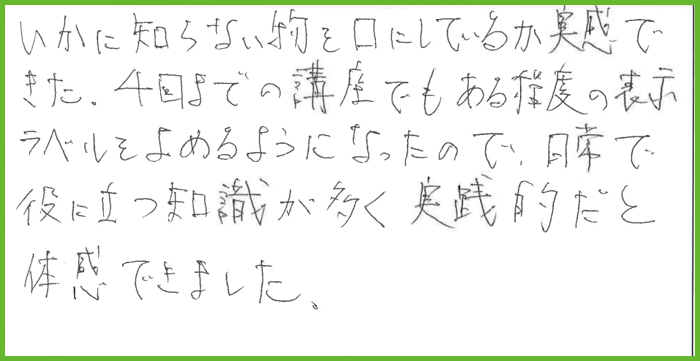 いかに知らない物を口にしているか実感で
きた。4回までの講座でもある程度の表示
ラベルをよめるようになったので、日常で
役に立つ知識が多く実践的だと
体感できました。